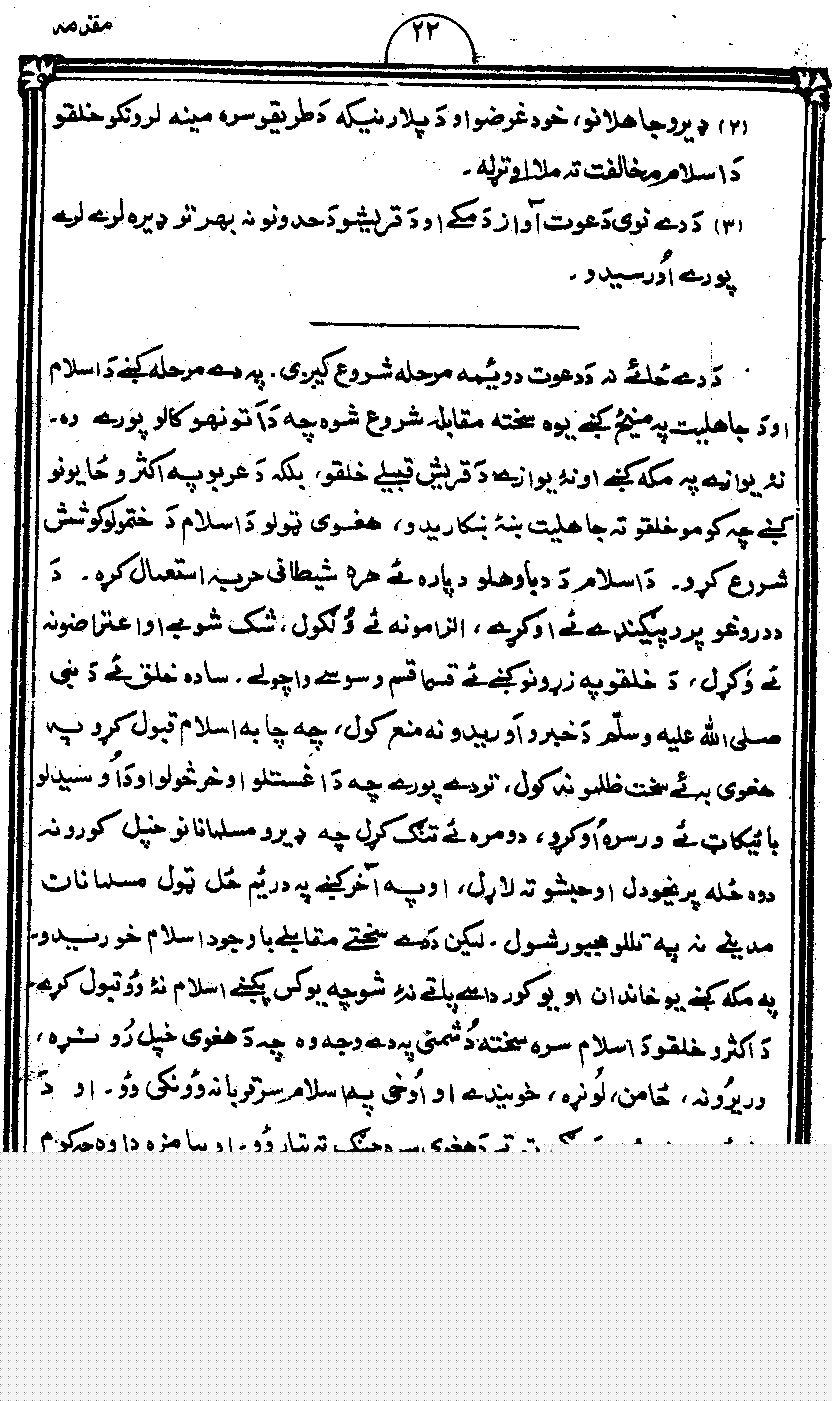 مقدمه
۲۲
(۲) ډیرو جاهلانو، خود غرضو او دَ پلار نیکه دَ طریقو سره مینه لرونکو خلقو
دَ اسلام مخالفت ته ملا اوتړله۔
(۳) دَ دے نوی دَعوت آواز دَ مکے او دَ قریشو دَ حدونو نه بهر تر ډیره لرے لرے
پورے اُورسیدو۔
دَ دے ځائے نه دَ دعوت دویٔمه مرحله شروع کیږی. په دے مرحله کښے دَ اسلام
او دَ جاهلیت په مینځ کښے یوه سخته مقابله شروع شوه چه دَ اَتو نهو کالو پورے وه۔
نهٔ یوازے په مکه کښے او نهٔ یوازے دَ قریش قبیلے خلقو، بلکه دَ عربو په اکثرو ځایونو
کښے چه کومو خلقو ته جاهلیت ښهٔ ښکاریدو، هغوی ټولو دَ اسلام دَ ختمولو کوشش
شروع کړو۔ دَ اسلام دَ دباوهلو دپاره ئے هره شیطانی حربه استعمال کړه۔ دَ
دروغو پروپیګنډے ئے اوکړے، الزامونه ئے وُلګول، شک شوبے او اعتراضونه
ئے وُکړل، دَ خلقو په زړونو کښے ئے قسما قسم وسوسے واچولے۔ ساده خلق ئے دَ نبی
صلی الله علیه وسلّم دَ خبرو آوریدو نه منع کول، چه چا به اسلام قبول کړو په
هغوی به ئے سخت ظلمونه کول، تر دے پورے چه دَ اغستلو او خرڅولو او دَ اُوسیدلو
بائیکاټ ئے ورسره اُوکړو، دومره ئے تنګ کړل چه ډیرو مسلمانانو خپل کورونه
دوه ځله پریخودل او حبشو ته لاړل، او په آخر کښے په دریٔم ځل ټول مسلمانان
مدینے ته په تللو مجبور شول۔ لیکن دَ دے سختے مقابلے باوجود اسلام خوریدو۔
په مکه کښے یو خاندان او یو کور داسے پاتے نهٔ شو چه یو کس پکښے اسلام نهٔ وُو قبول کړے۔
دَ اکثرو خلقو دَ اسلام سره سخته دُشمنی په دے وجه وه چه دَ هغوی خپل
وریرُونه، ځامن، لُونړه، خویندے او اُوښی په اسلام سر قربانه وُونکی وُو۔ او دَ
دَ هغوی سره جنګ ته تیار وُو۔ او بیا مزه دا وه چه کوم